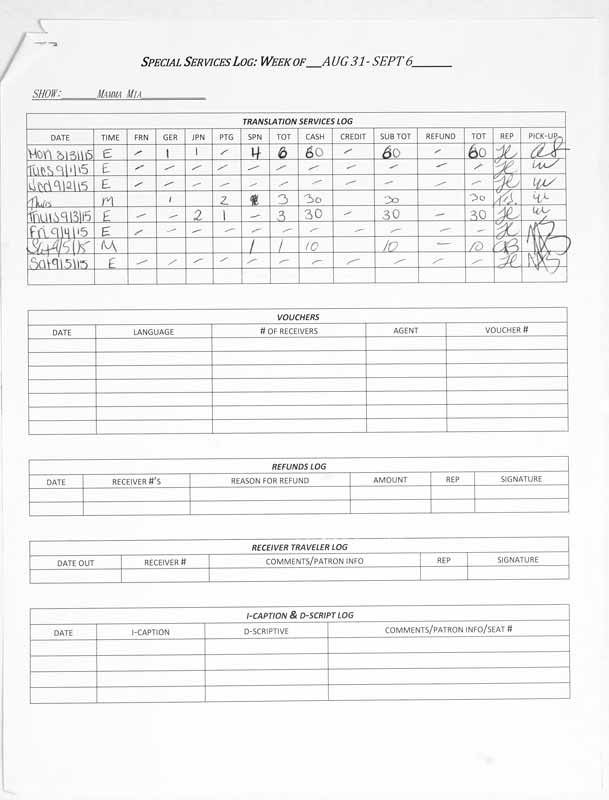 SPECIAL SERVICES LOG: WEEK OF __AUG 31- SEPT 6______
SHOW:______MAMMA MIA__________
TRANSLATION SERVICES LOG
DATE TIME FRN GER JPN PTG SPN TOT CASH CREDIT SUB TOT REFUND TOT REP PICK-UP
Mon 8/31/15 E - 1 1 - 4 6 60 - 60 60
Tues 9/1/15 E - - - - - - - - - - -
Wed 9/2/15 E - - - - - - - - - - -
Thurs M 1 2 3 30 30 30
Thurs 9/3/15 E - - 2 1 - 3 30 - 30 - 30
Fri 9/4/15 E - - - - - - - - - - -
Sat 9/5/15 M 1 1 10 10 - 10
Sat 9/5/15 E - - - - - - - - - - -
VOUCHERS
DATE LANGUAGE # OF RECEIVERS AGENT VOUCHER #
REFUNDS LOG
DATE RECEIVER #'S REASON FOR REFUND AMOUNT REP SIGNATURE
RECEIVER TRAVELER LOG
DATE OUT RECEIVER # COMMENTS/PATRON INFO REP SIGNATURE
I-CAPTION & D-SCRIPT LOG
DATE I-CAPTION D-SCRIPTIVE COMMENTS/PATRON INFO/SEAT #